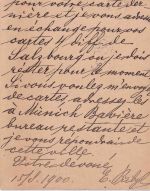 pour votre carte der
nière et je vous adresse
en échange pour vos
cartes 4 diff. de
Salzbourg où je dois
rester pour le moment
Si vous voulez m'envoyer
de cartes, adressez-les
à Münich Bavière
bureau restante et
je vous repondrai de
cette ville.
Votre dévoué
15/8. 1900.